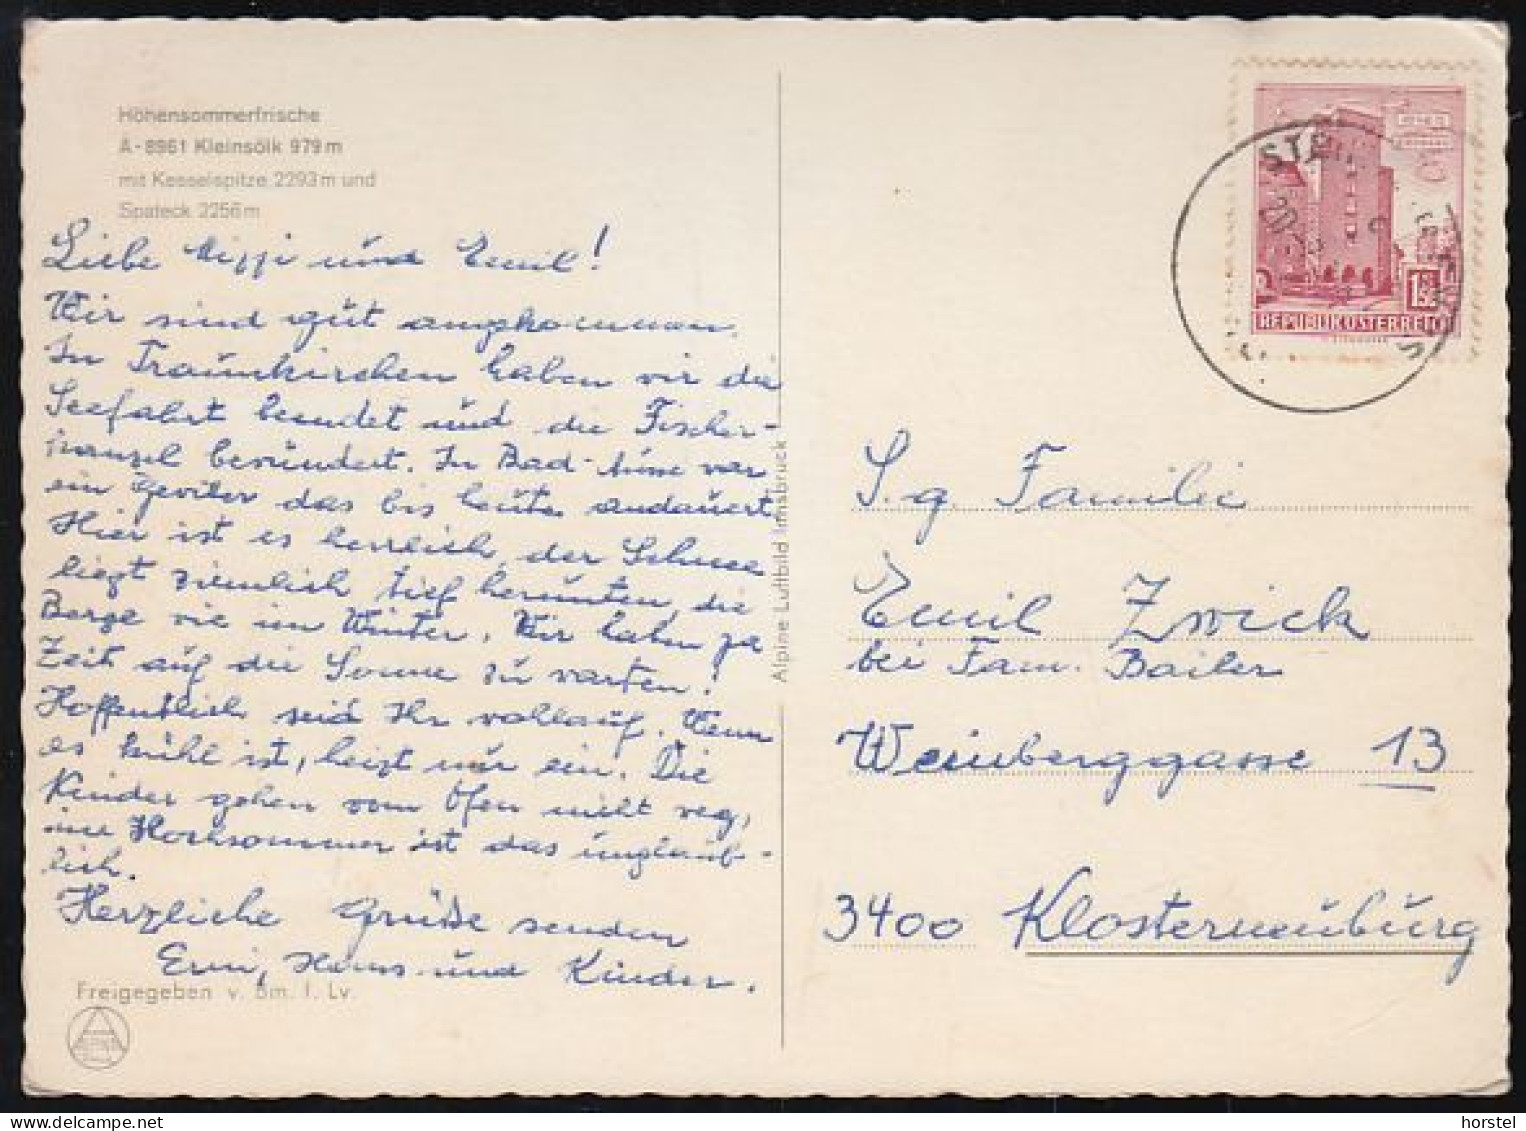 Höhensommerfrische
A-8961 Kleinsölk 979m
mit Kesselspitze 2293m und
Spateck 2256m
Liebe Mizzi und Emil!
Wir sind gut angekommen.
In Traunkirchen haben wir die
Seefahrt beendet und die Fischer-
hansel bewundert. In Bad-Ausse war
ein Gewitter das bis heute andauert.
Hier ist es herrlich, der Schnee
liegt ziemlich tief herunten, die
Berge wie im Winter. Wir haben ja
Zeit auf die Sonne zu warten!
Hoffentlich seid Ihr wohlauf. Wenn
es kühl ist, heizt nur ein. Die
Kinder gehen vom Ofen nicht weg,
im Hochsommer ist das unglaub-
lich.
Herzliche Grüße senden
Erni, Hans und Kinder.
Freigegeben v. Bm. f. Lv.
Alpine Luftbild Innsbruck
REPUBLIK ÖSTERREICH
1.50
S.g. Familie
Emil Zwick
bei Fam. Bailer
Weinberggasse 13
3400 Klosterneuburg
horstel